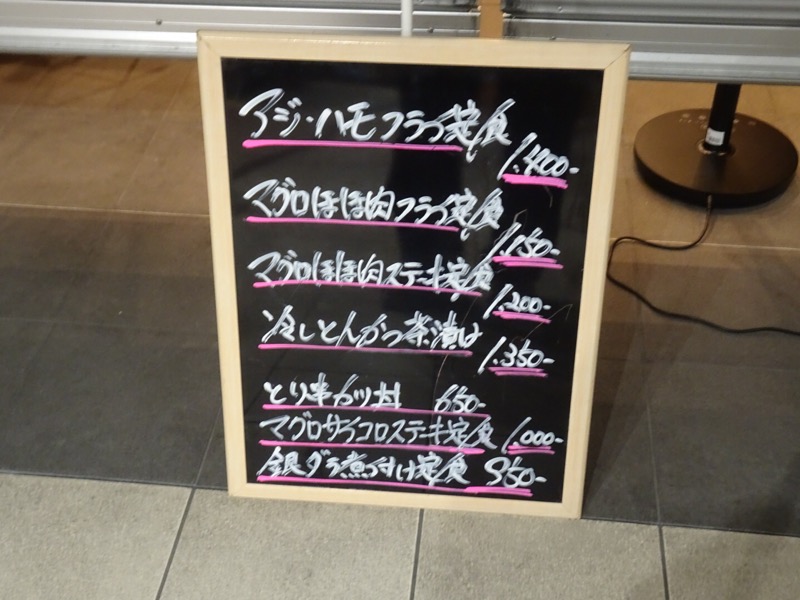 アジ・ハモフライ定食
1.400-
マグロほほ肉フライ定食
1.150-
マグロほほ肉ステーキ定食
1.200-
冷しとんかつ茶漬け
1.350-
とり串カツ丼 650-
マグロサイコロステーキ定食 1.000-
銀ダラ煮つけ定食 950-